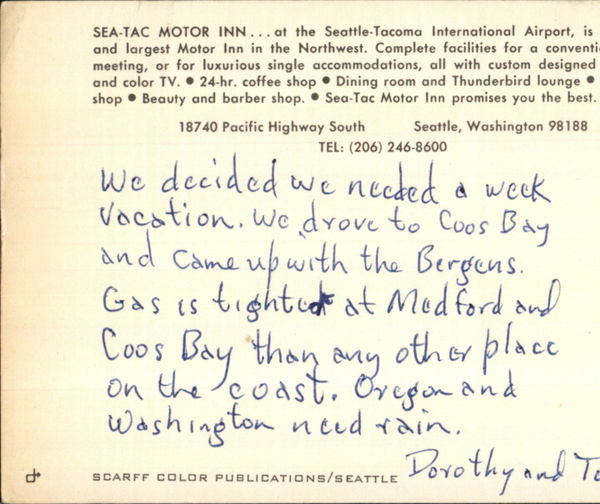 SEA-TAC MOTOR INN... at the Seattle-Tacoma International Airport, is
and largest Motor Inn in the Northwest. Complete facilities for a conventi
meeting, or for luxurious single accommodations, all with custom designed
and color TV. • 24-hr. coffee shop • Dining room and Thunderbird lounge •
shop • Beauty and barber shop. • Sea-Tac Motor Inn promises you the best.
18740 Pacific Highway South Seattle, Washington 98188
TEL: (206) 246-8600
We decided we needed a week
vacation. We drove to Coos Bay
and came up with the Bergens.
Gas is tighter at Medford and
Coos Bay than any other place
on the coast. Oregon and
Washington need rain.
Dorothy and To
SCARFF COLOR PUBLICATIONS/SEATTLE